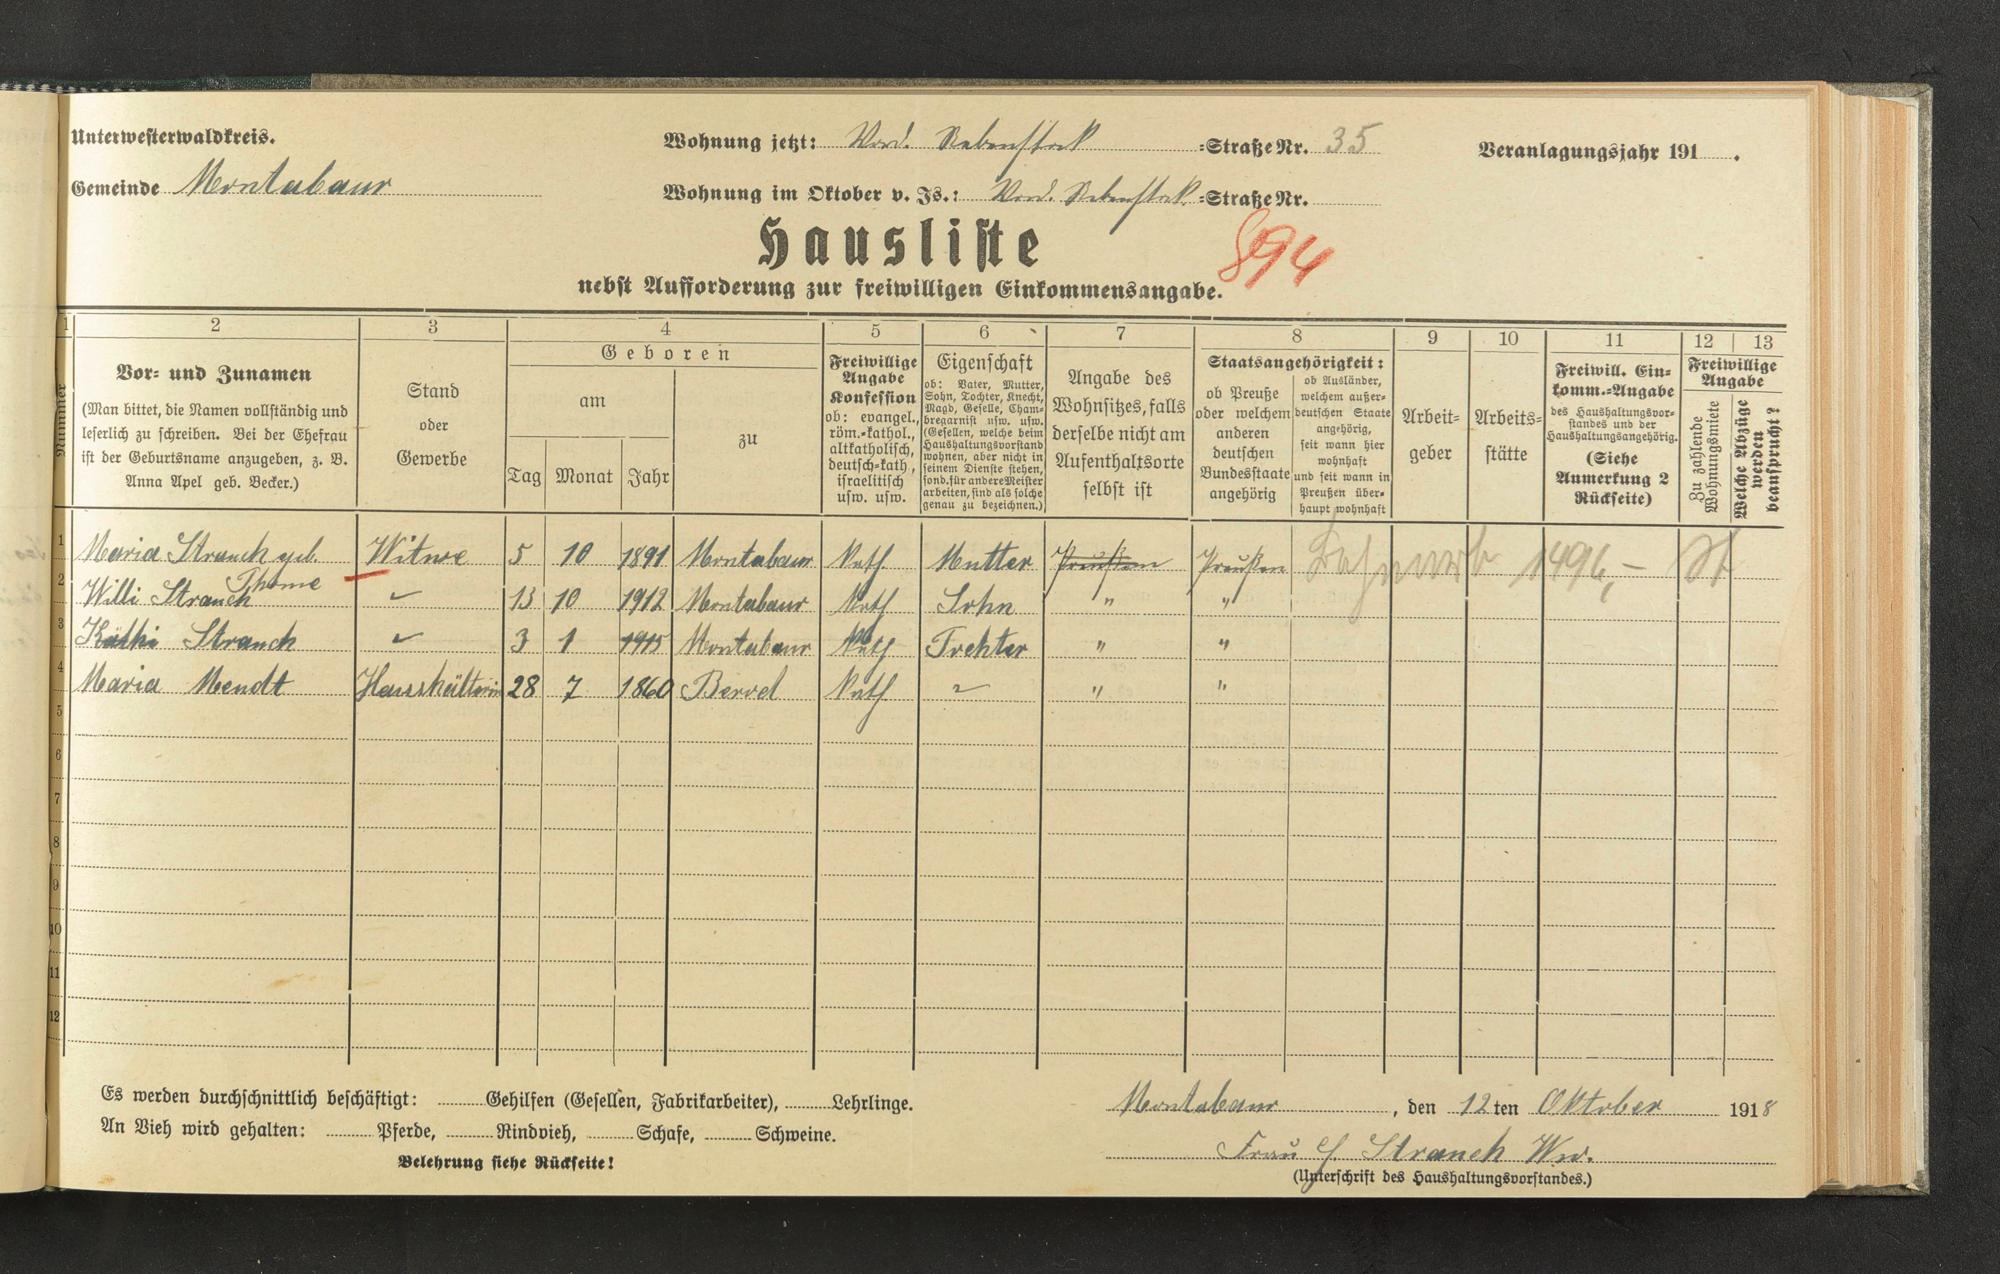 Unterwesterwaldkreis.
Gemeinde Montabaur
Wohnung jetzt: Vord. Rebenstock =Straße Nr. 35
Veranlagungsjahr 191 .
Wohnung im Oktober v. Js.: Vord. Rebenstock =Straße Nr.
Hausliste
894
nebst Aufforderung zur freiwilligen Einkommensangabe.
1 2 3 4 5 6 7 8 9 10 11 12 13
Nummer
Vor- und Zunamen
(Man bittet, die Namen vollständig und
leserlich zu schreiben. Bei der Ehefrau
ist der Geburtsname anzugeben, z. B.
Anna Apel geb. Becker.)
Stand
oder
Gewerbe
Geboren
am
Tag Monat Jahr
zu
Freiwillige
Angabe
Konfession
ob: evangel.,
röm.=kathol.,
altkatholisch,
deutsch=kath,
israelitisch
usw. usw.
Eigenschaft
ob: Vater, Mutter,
Sohn, Tochter, Knecht,
Magd, Geselle, Cham-
bregarnist usw. usw.
(Gesellen, welche beim
Haushaltungsvorstand
wohnen, aber nicht in
seinem Dienste stehen,
sond. für andere Meister
arbeiten, sind als solche
genau zu bezeichnen.)
Angabe des
Wohnsitzes, falls
derselbe nicht am
Aufenthaltsorte
selbst ist
Staatsangehörigkeit:
ob Preuße
oder welchem
anderen
deutschen
Bundesstaate
angehörig
ob Ausländer,
welchem außer-
deutschen Staate
angehörig,
seit wann hier
wohnhaft
und seit wann in
Preußen über-
haupt wohnhaft
Arbeit=
geber
Arbeits=
stätte
Freiwill. Ein-
komm.=Angabe
des Haushaltungsvor-
standes und der
Haushaltungsangehörig.
(Siehe
Anmerkung 2
Rückseite)
Freiwillige
Angabe
Zu zahlende
Wohnungsmiete
Welche Abzüge
werden
beansprucht?
1 Maria Strauch geb. Thome Witwe 5 10 1891 Montabaur Kath Mutter Preußen Preußen 1496,-
2 Willi Strauch 13 10 1912 Montabaur Kath Sohn " "
3 Käthi Strauch 3 1 1915 Montabaur Kath Tochter " "
4 Maria Mendt Haushälterin 28 7 1860 Berod Kath " "
5
6
7
8
9
10
11
12
Es werden durchschnittlich beschäftigt: Gehilfen (Gesellen, Fabrikarbeiter), Lehrlinge.
An Vieh wird gehalten: Pferde, Rindvieh, Schafe, Schweine.
Belehrung siehe Rückseite!
Montabaur , den 12ten Oktober 1918
Frau J. Strauch Ww.
(Unterschrift des Haushaltungsvorstandes.)